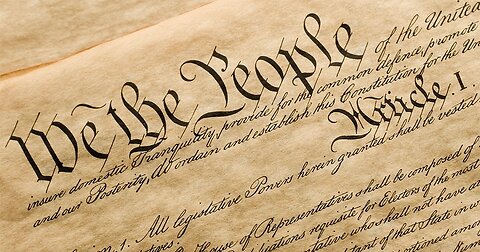 We the People of the United
insure domestic Tranquility, provide for the common defence, promote
and our Posterity, do ordain and establish this Constitution for the Uni
Article. I.
n. 1. All legislative Powers herein granted shall be vested
House of Representatives shall be composed of
ations requisite for Electors of the most
tative who shall not have
of that State in w
ortioned among